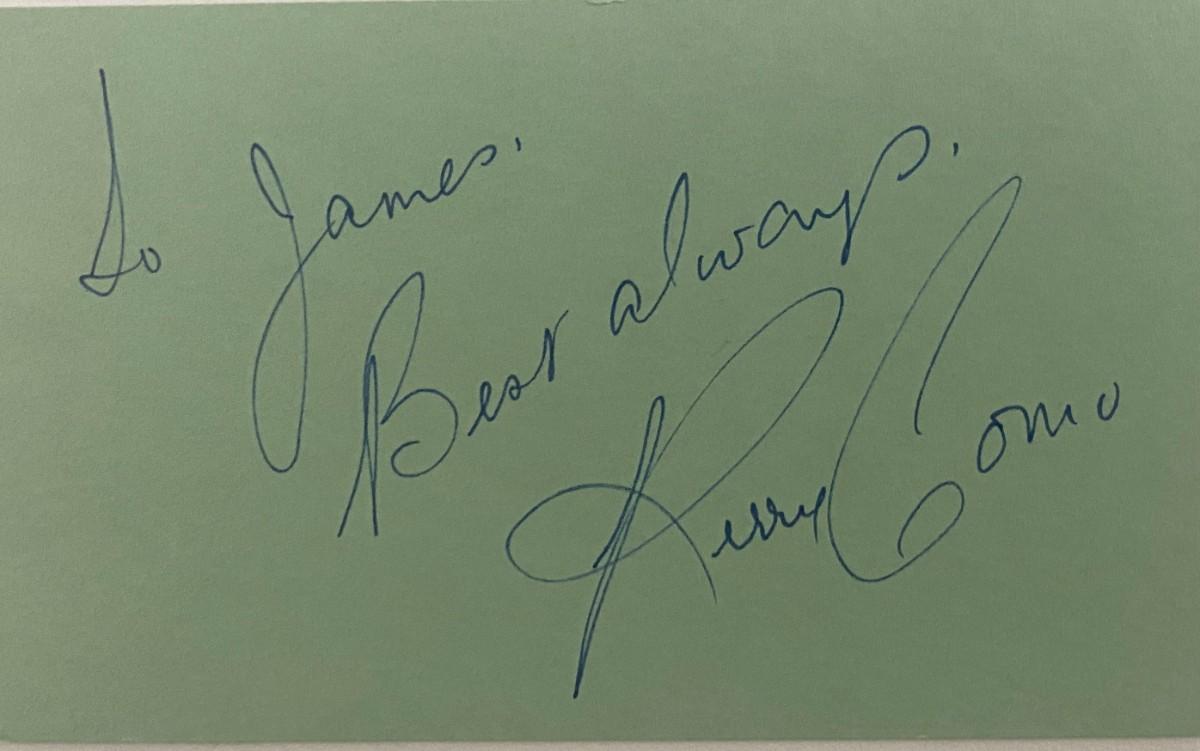 To James,
Best always,
Perry Como